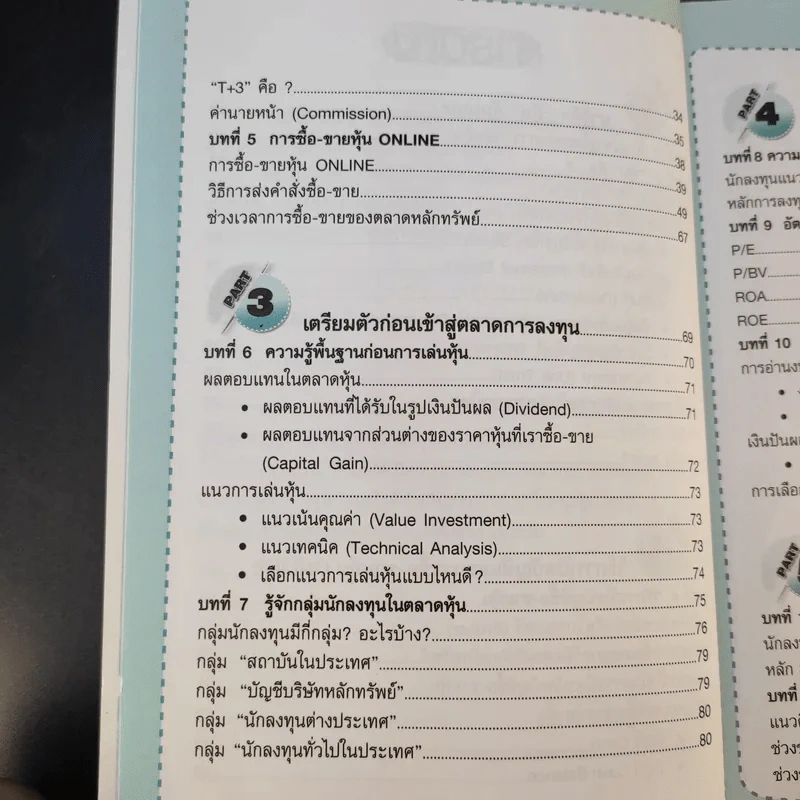 "T+3" คือ ?..........34
ค่านายหน้า (Commission)..........35
บทที่ 5 การซื้อ-ขายหุ้น ONLINE..........38
การซื้อ-ขายหุ้น ONLINE..........39
วิธีการส่งคำสั่งซื้อ-ขาย..........49
ช่วงเวลาการซื้อ-ขายของตลาดหลักทรัพย์..........67
PART 3
เตรียมตัวก่อนเข้าสู่ตลาดการลงทุน..........69
บทที่ 6 ความรู้พื้นฐานก่อนการเล่นหุ้น..........70
ผลตอบแทนในตลาดหุ้น..........71
• ผลตอบแทนที่ได้รับในรูปเงินปันผล (Dividend)..........71
• ผลตอบแทนจากส่วนต่างของราคาหุ้นที่เราซื้อ-ขาย
(Capital Gain)..........72
แนวการเล่นหุ้น..........73
• แนวเน้นคุณค่า (Value Investment)..........73
• แนวเทคนิค (Technical Analysis)..........73
• เลือกแนวการเล่นหุ้นแบบไหนดี ?..........74
บทที่ 7 รู้จักกลุ่มนักลงทุนในตลาดหุ้น..........75
กลุ่มนักลงทุนมีกี่กลุ่ม? อะไรบ้าง?..........76
กลุ่ม "สถาบันในประเทศ"..........79
กลุ่ม "บัญชีบริษัทหลักทรัพย์"..........79
กลุ่ม "นักลงทุนต่างประเทศ"..........80
กลุ่ม "นักลงทุนทั่วไปในประเทศ"..........80
PART 4
บทที่ 8 ความ
นักลงทุนแนว
หลักการลงทุ
บทที่ 9 อัต
P/E
P/BV
ROA
ROE
บทที่ 10
การอ่านงบ
เงินปันผล
การเลือก
PART
บทที่
นักลง
หลัก
บทที่
แนว
ช่วง
ช่วง